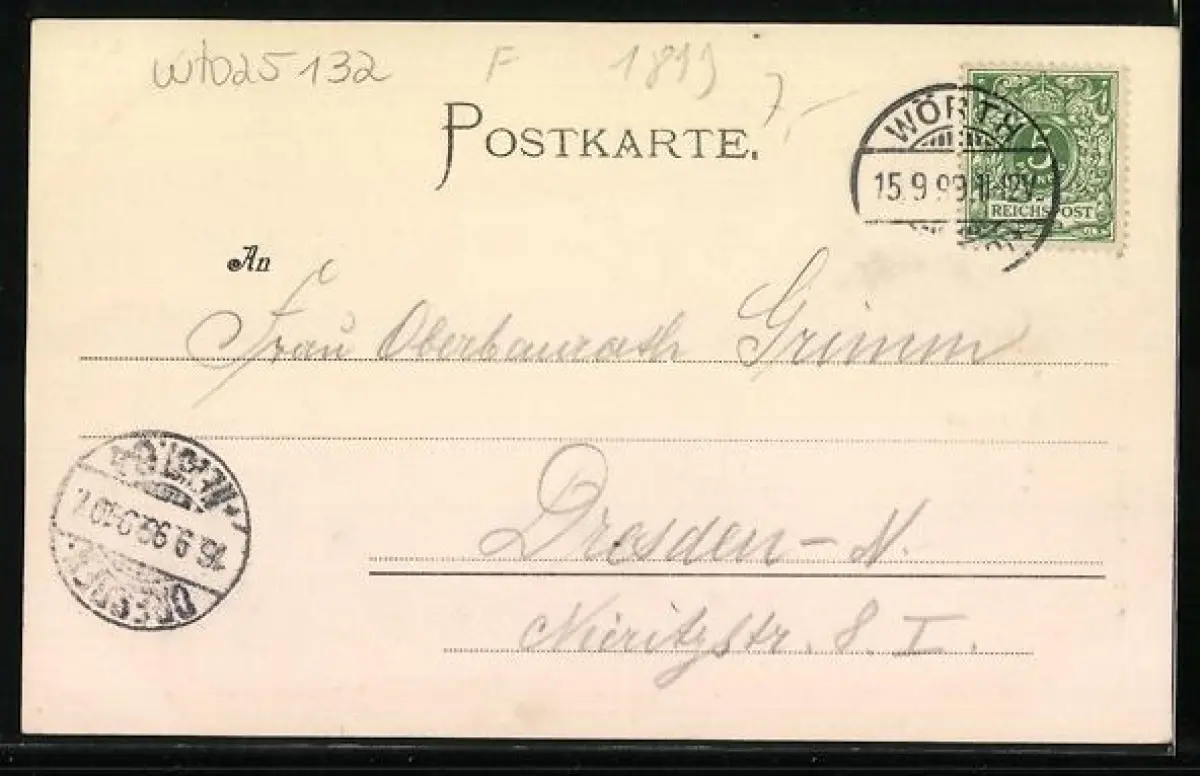 wto25132 F 1899 7,-
POSTKARTE.
WÖRTH
15.9.99.11-12V.
5
REICHSPOST
An
Frau Oberbaurath Grimm
Dresden-N.
Nieritzstr. 8. I.
16.9.99.9-10V.
DRESDEN